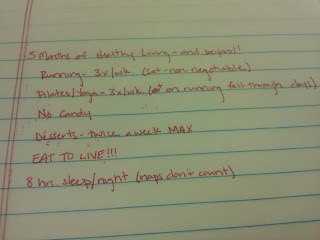 3 Months of Healthy Living - and beyond!
Running - 3x/wk (sat - non-negotiable)
Pilates/Yoga - 3x/wk (on running fall-through days)
No Candy
Desserts - twice a week MAX
EAT TO LIVE!!!
8 hrs. sleep/night (naps don't count)